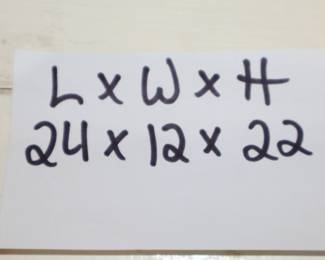 L x W x H
24 x 12 x 22